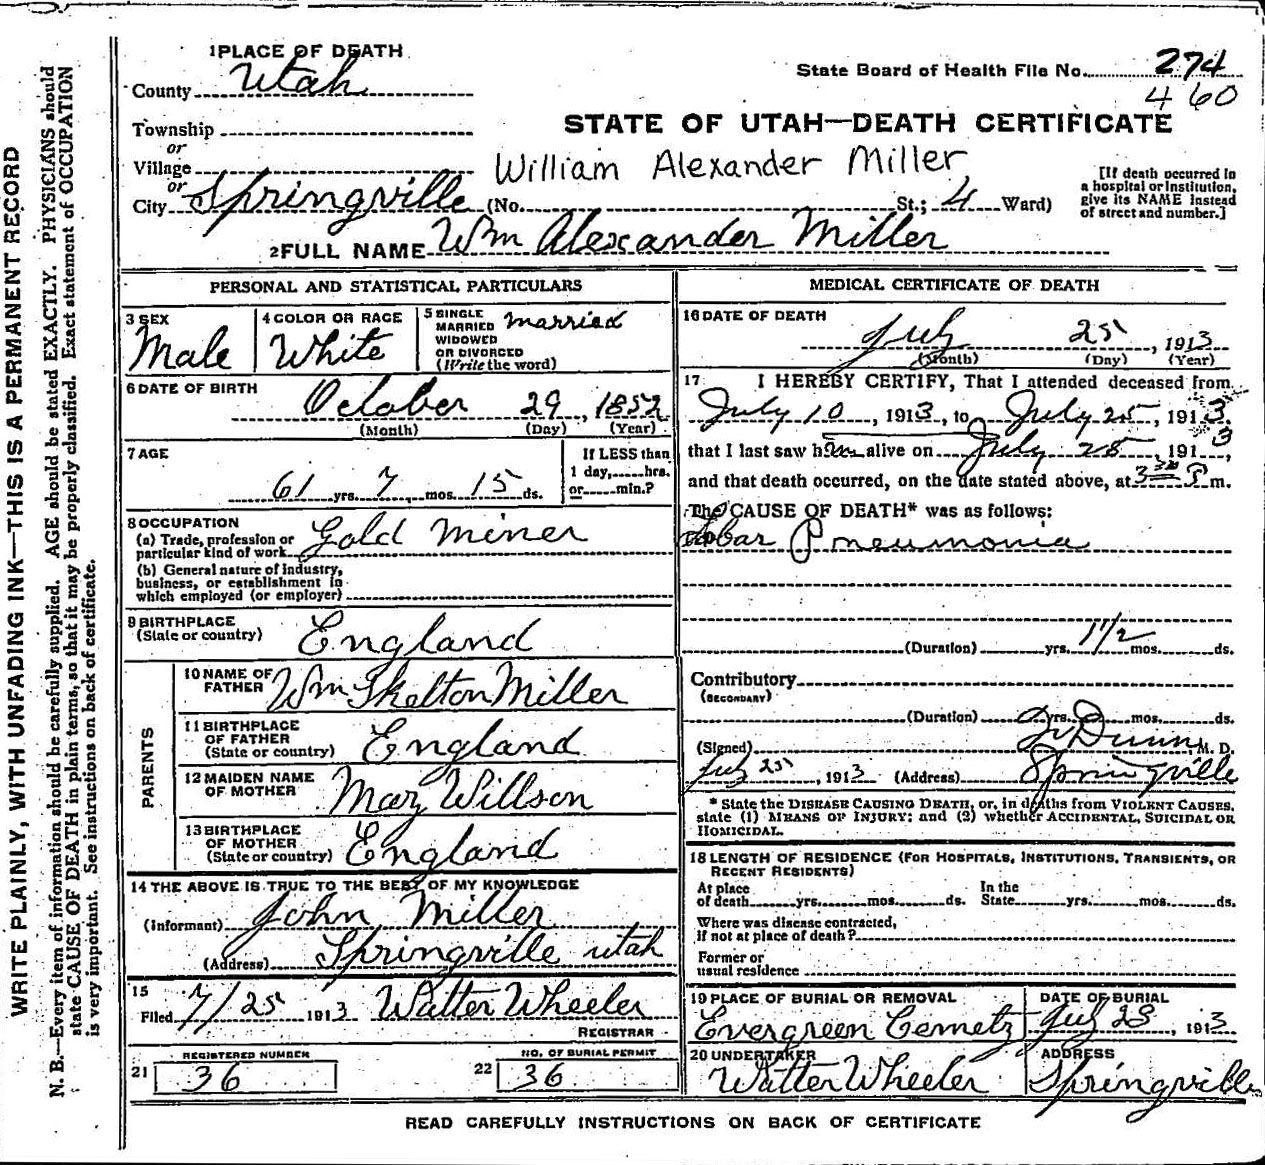 1 PLACE OF DEATH
County Utah
State Board of Health File No. 274
460
Township
or
STATE OF UTAH—DEATH CERTIFICATE
Village
or
William Alexander Miller
City Springville (No. St.; 4 Ward)
[If death occurred in
a hospital or institution,
give its NAME instead
of street and number.]
2 FULL NAME Wm Alexander Miller
PERSONAL AND STATISTICAL PARTICULARS
3 SEX
Male
4 COLOR OR RACE
White
5 SINGLE
MARRIED
WIDOWED
OR DIVORCED
(Write the word)
married
6 DATE OF BIRTH
October 29, 1852
(Month) (Day) (Year)
7 AGE
61 yrs. 7 mos. 15 ds.
If LESS than
1 day, hrs.
or min.?
8 OCCUPATION
(a) Trade, profession or
particular kind of work Gold Miner
(b) General nature of industry,
business, or establishment in
which employed (or employer)
9 BIRTHPLACE
(State or country) England
PARENTS
10 NAME OF
FATHER Wm Skelton Miller
11 BIRTHPLACE
OF FATHER
(State or country) England
12 MAIDEN NAME
OF MOTHER Mary Willson
13 BIRTHPLACE
OF MOTHER
(State or country) England
14 THE ABOVE IS TRUE TO THE BEST OF MY KNOWLEDGE
(Informant) John Miller
(Address) Springville utah
15
Filed 7/25 1913 Walter Wheeler
REGISTRAR
REGISTERED NUMBER
21 36
NO. OF BURIAL PERMIT
22 36
MEDICAL CERTIFICATE OF DEATH
16 DATE OF DEATH
July 25, 1913
(Month) (Day) (Year)
17 I HEREBY CERTIFY, That I attended deceased from
July 10, 1913, to July 25, 1913.
that I last saw him alive on July 25, 1913,
and that death occurred, on the date stated above, at 3 30 P m.
The CAUSE OF DEATH* was as follows:
Lobar Pneumonia
(Duration) yrs. 1 1/2 mos. ds.
Contributory
(SECONDARY)
(Duration) yrs. mos. ds.
(Signed) Dunn, M. D.
July 25, 1913 (Address) Springville
* State the DISEASE CAUSING DEATH, or, in deaths from VIOLENT CAUSES,
state (1) MEANS OF INJURY; and (2) whether ACCIDENTAL, SUICIDAL OR
HOMICIDAL.
18 LENGTH OF RESIDENCE (FOR HOSPITALS, INSTITUTIONS, TRANSIENTS, OR
RECENT RESIDENTS)
At place
of death yrs. mos. ds.
In the
State yrs. mos. ds.
Where was disease contracted,
if not at place of death?
Former or
usual residence
19 PLACE OF BURIAL OR REMOVAL
Evergreen Cemetz
DATE OF BURIAL
July 28, 1913
20 UNDERTAKER
Walter Wheeler
ADDRESS
Springville
READ CAREFULLY INSTRUCTIONS ON BACK OF CERTIFICATE
WRITE PLAINLY, WITH UNFADING INK—THIS IS A PERMANENT RECORD
N. B.—Every item of information should be carefully supplied. AGE should be stated EXACTLY. PHYSICIANS should
state CAUSE OF DEATH in plain terms, so that it may be properly classified. Exact statement of OCCUPATION
is very important. See instructions on back of certificate.